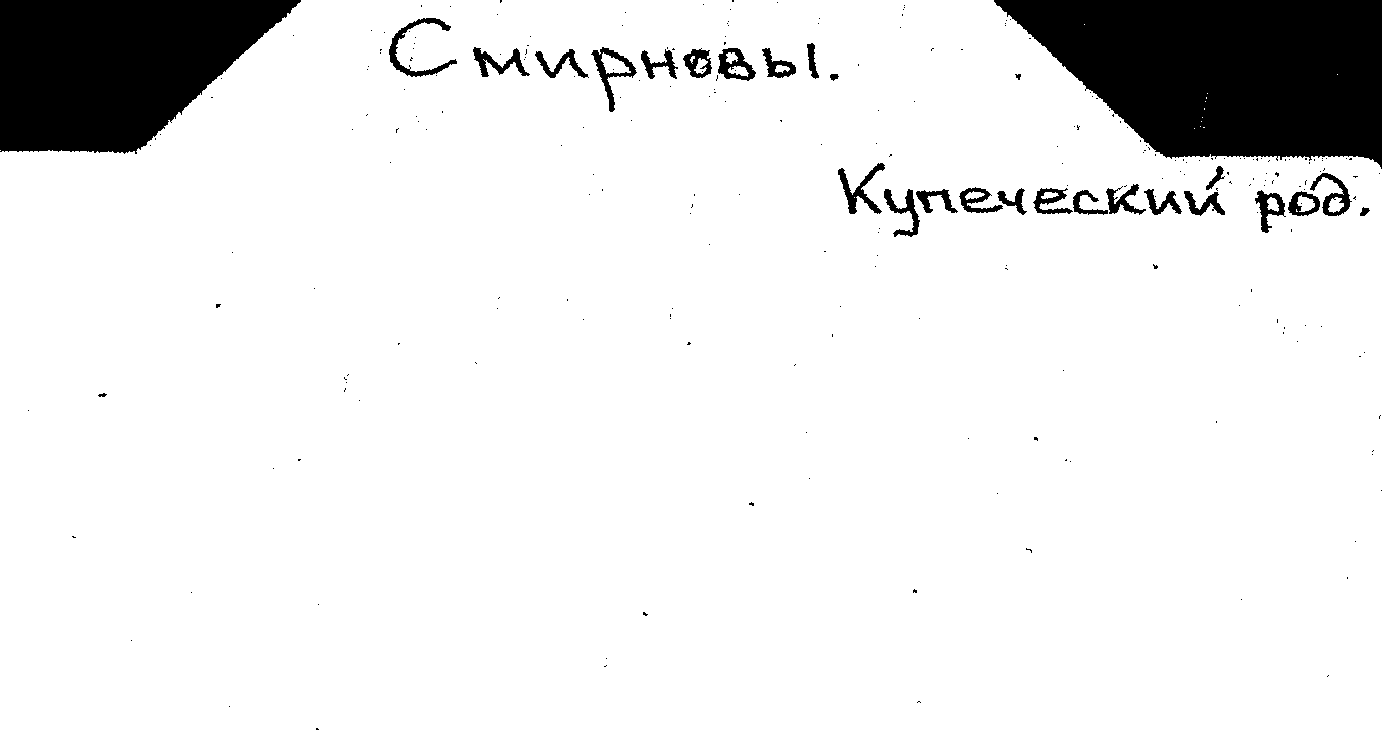 Смирновы.
Купеческий род.